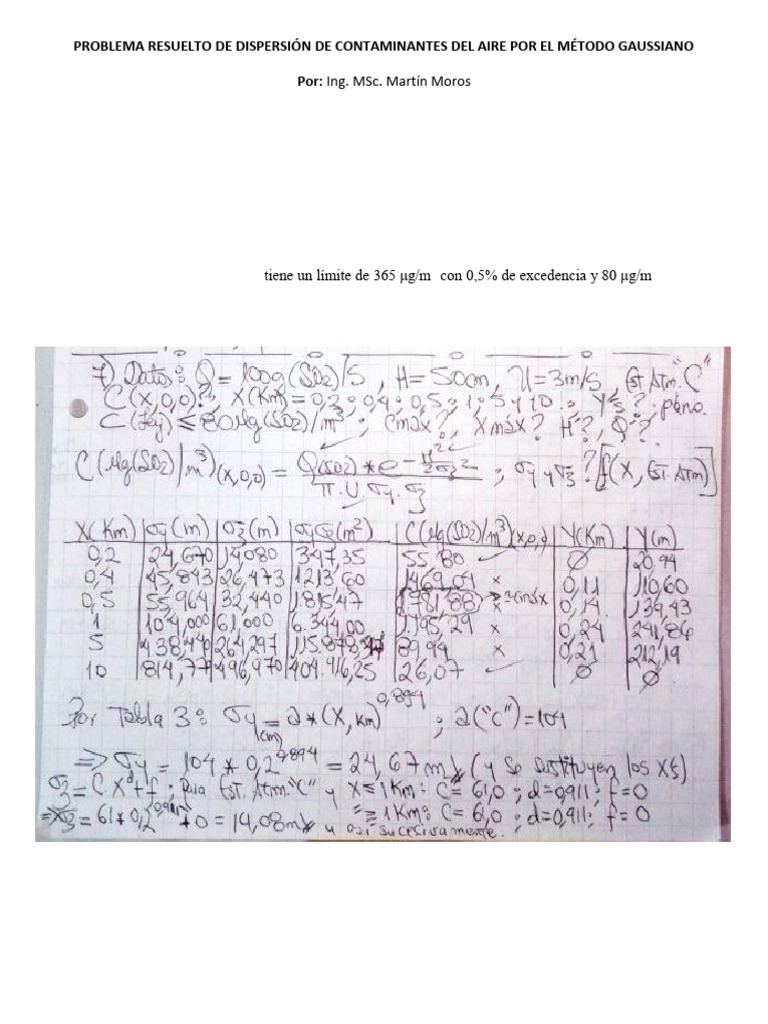 PROBLEMA RESUELTO DE DISPERSIÓN DE CONTAMINANTES DEL AIRE POR EL MÉTODO GAUSSIANO
Por: Ing. MSc. Martín Moros
tiene un límite de 365 µg/m con 0,5% de excedencia y 80 µg/m
7) Datos: Q = 100g(SO2)/S, H = 50m, U = 3m/s, Est. Atm. "C"
C(X,0,0)?, X(Km) = 0,2; 0,4; 0,5; 1; 5 y 10.; Ys?; plano.
C(Ley) ≤ 80Mg(SO2)/m³; Cmáx?, Xmáx? H?, Q?
C(Mg(SO2)/m³)(X,0,0) = Q(SO2)*e^-H²/2σz² / π.U.σy.σz ; σy y σz? [f(X, Est. Atm)]
X(Km) σy(m) σz(m) σyσz(m²) C(Mg(SO2)/m³)(x,0,0) Y(Km) Y(m)
0,2 24,670 14,080 347,35 55,80 ✓ Ø 20,94
0,4 45,843 26,473 1213,60 1469,04 x 0,11 110,60
0,5 55,964 32,440 1.815,47 1781,88 x 0,14 139,43
1 104,000 61,000 6.344,00 1.195,29 x 0,24 241,86
5 438,440 264,297 115.878,37 89,94 x 0,21 212,19
10 814,77 496,970 404.916,25 26,07 ✓ Ø Ø
Por Tabla 3: σy(m) = a*(X,Km)^0,894 ; a("C") = 104
=> σy = 104 * 0,2^0,894 = 24,67m (y se sustituyen los Xs)
σz = C.X^d+f; Para Est. Atm. "C" y X ≤ 1Km: C = 61,0; d = 0,911; f = 0
=> σz = 61*0,2^0,911 + 0 = 14,08m y así sucesivamente. ≥ 1Km: C = 61,0; d = 0,911; f = 0